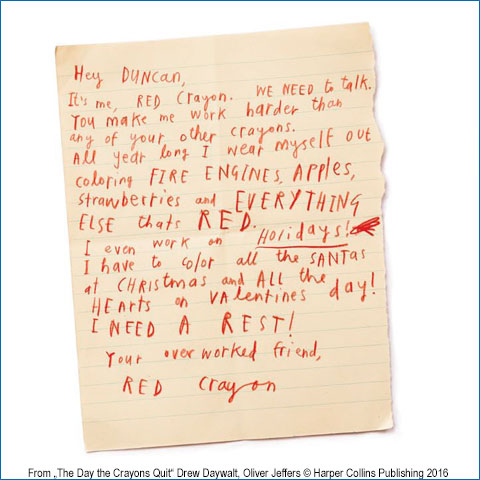 Hey DUNCAN,
It's me, RED Crayon. WE NEED to talk.
You make me work harder than
any of your other crayons.
All year long I wear myself out
coloring FIRE ENGINES, Apples,
strawberries and EVERYTHING
ELSE thats RED.
I even work on HOlidays!
I have to color all the SANTAs
at CHRistmas and ALL the
HEArts on VAlentines day!
I NEED A REST!
Your overworked friend,
RED Crayon
From „The Day the Crayons Quit“ Drew Daywalt, Oliver Jeffers © Harper Collins Publishing 2016